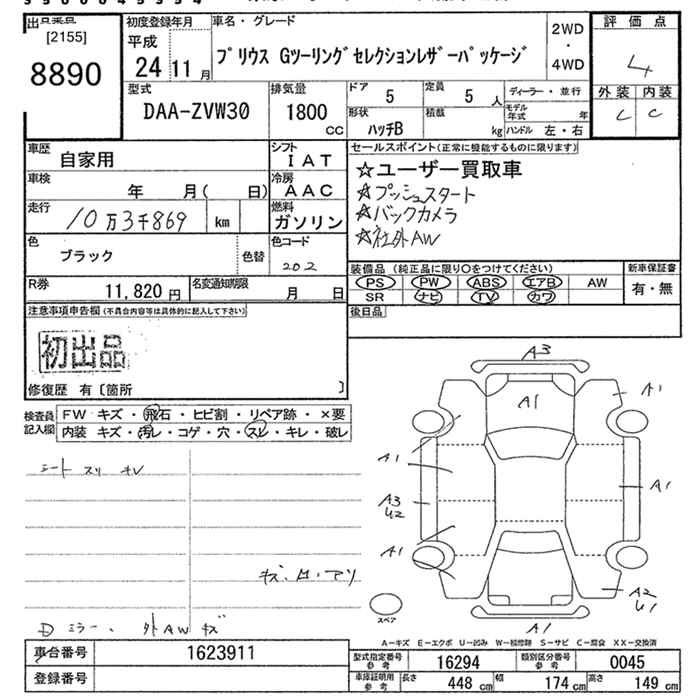 出品票
[2155]
8890
初度登録年月
平成
24 11月
車名・グレード
プリウス Gツーリングセレクションレザーパッケージ
2WD
・
4WD
評価点
4
外装 内装
C C
型式
DAA-ZVW30
排気量
1800
CC
ドア
5
定員
5 人
形状
ハッチB
積載
kg
ディーラー・並行
モデル年式 年
ハンドル 左・右
車歴
自家用
シフト
IAT
車検
年 月( 日)
冷房
AAC
走行
10万3千869 km
燃料
ガソリン
色
ブラック
色替
色コード
202
R券
11,820 円
名変通知期限
月 日
セールスポイント(正常に機能するものに限ります)
☆ユーザー買取車
☆プッシュスタート
☆バックカメラ
☆社外AW
装備品 (純正品に限り○をつけてください)
PS PW ABS エアB AW
SR ナビ TV カワ
新車保証書
有・無
後日品
注意事項申告欄(不具合内容等は具体的に記入して下さい)
初出品
修復歴 有〔箇所 〕
検査員記入欄
FW キズ・飛石・ヒビ割・リペア跡・×要
内装 キズ・汚レ・コゲ・穴・スレ・キレ・破レ
シート スリ キレ
Dミラー、外AWキズ
A3
A1
A1
A1
A3
U2
A1
A1
A2
U1
A1
スペア
A-キズ E-エクボ U-凹み W-補修跡 S-サビ C-腐食 XX-交換済
車台番号
1623911
登録番号
型式指定番号 参考
16294
類別区分番号 参考
0045
車庫証明用 参考
長さ 448 cm
幅 174 cm
高さ 149 cm